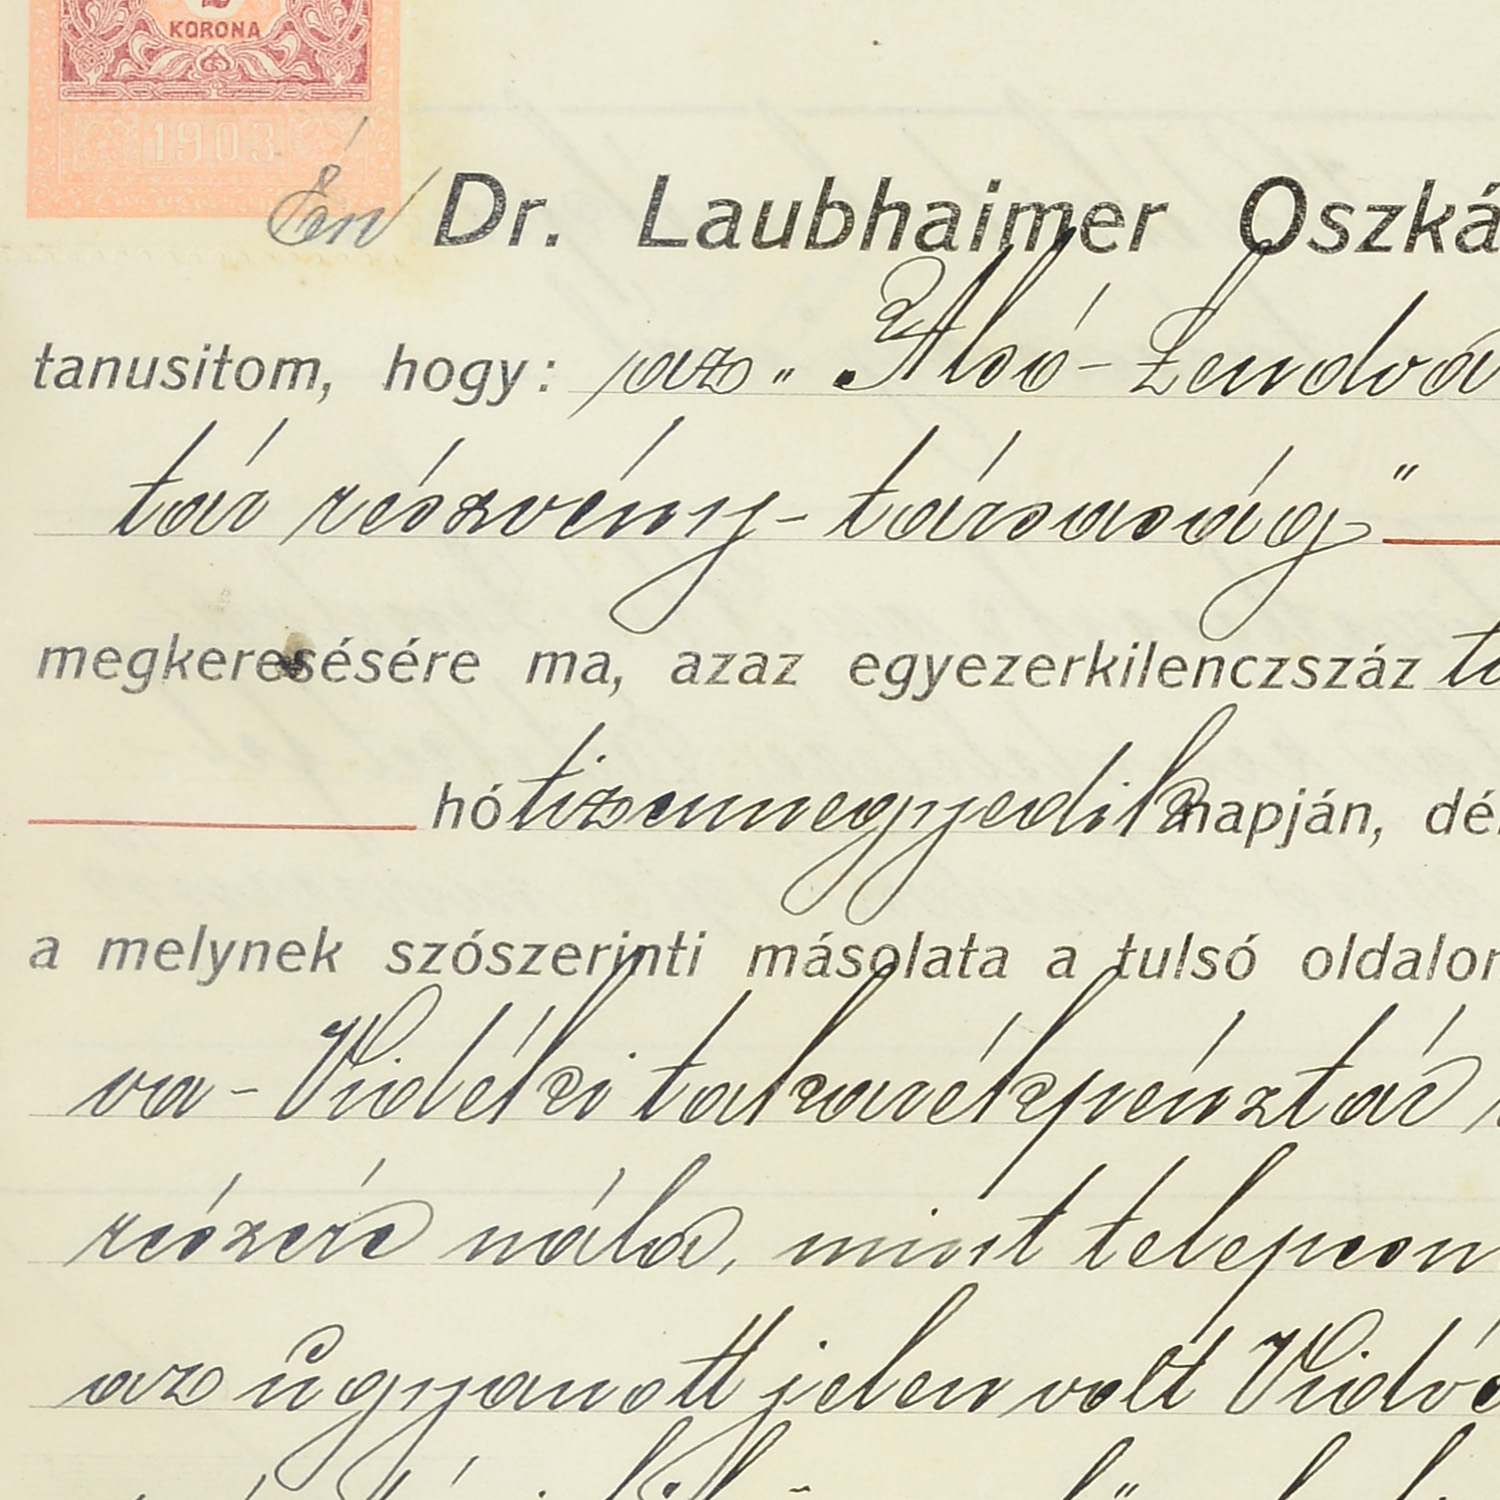 KORONA
1903
Én Dr. Laubhaimer Oszká
tanusitom, hogy: az „Alsó-Lendva
tár részvény-társaság"
megkeresésére ma, azaz egyezerkilenczszáz
hó tizennegyedik napján, dél
a melynek szószerinti másolata a tulsó oldalon
va-Vidéki takarékpénztár
részére nála, mint telepesen
az ugyanott jelen volt